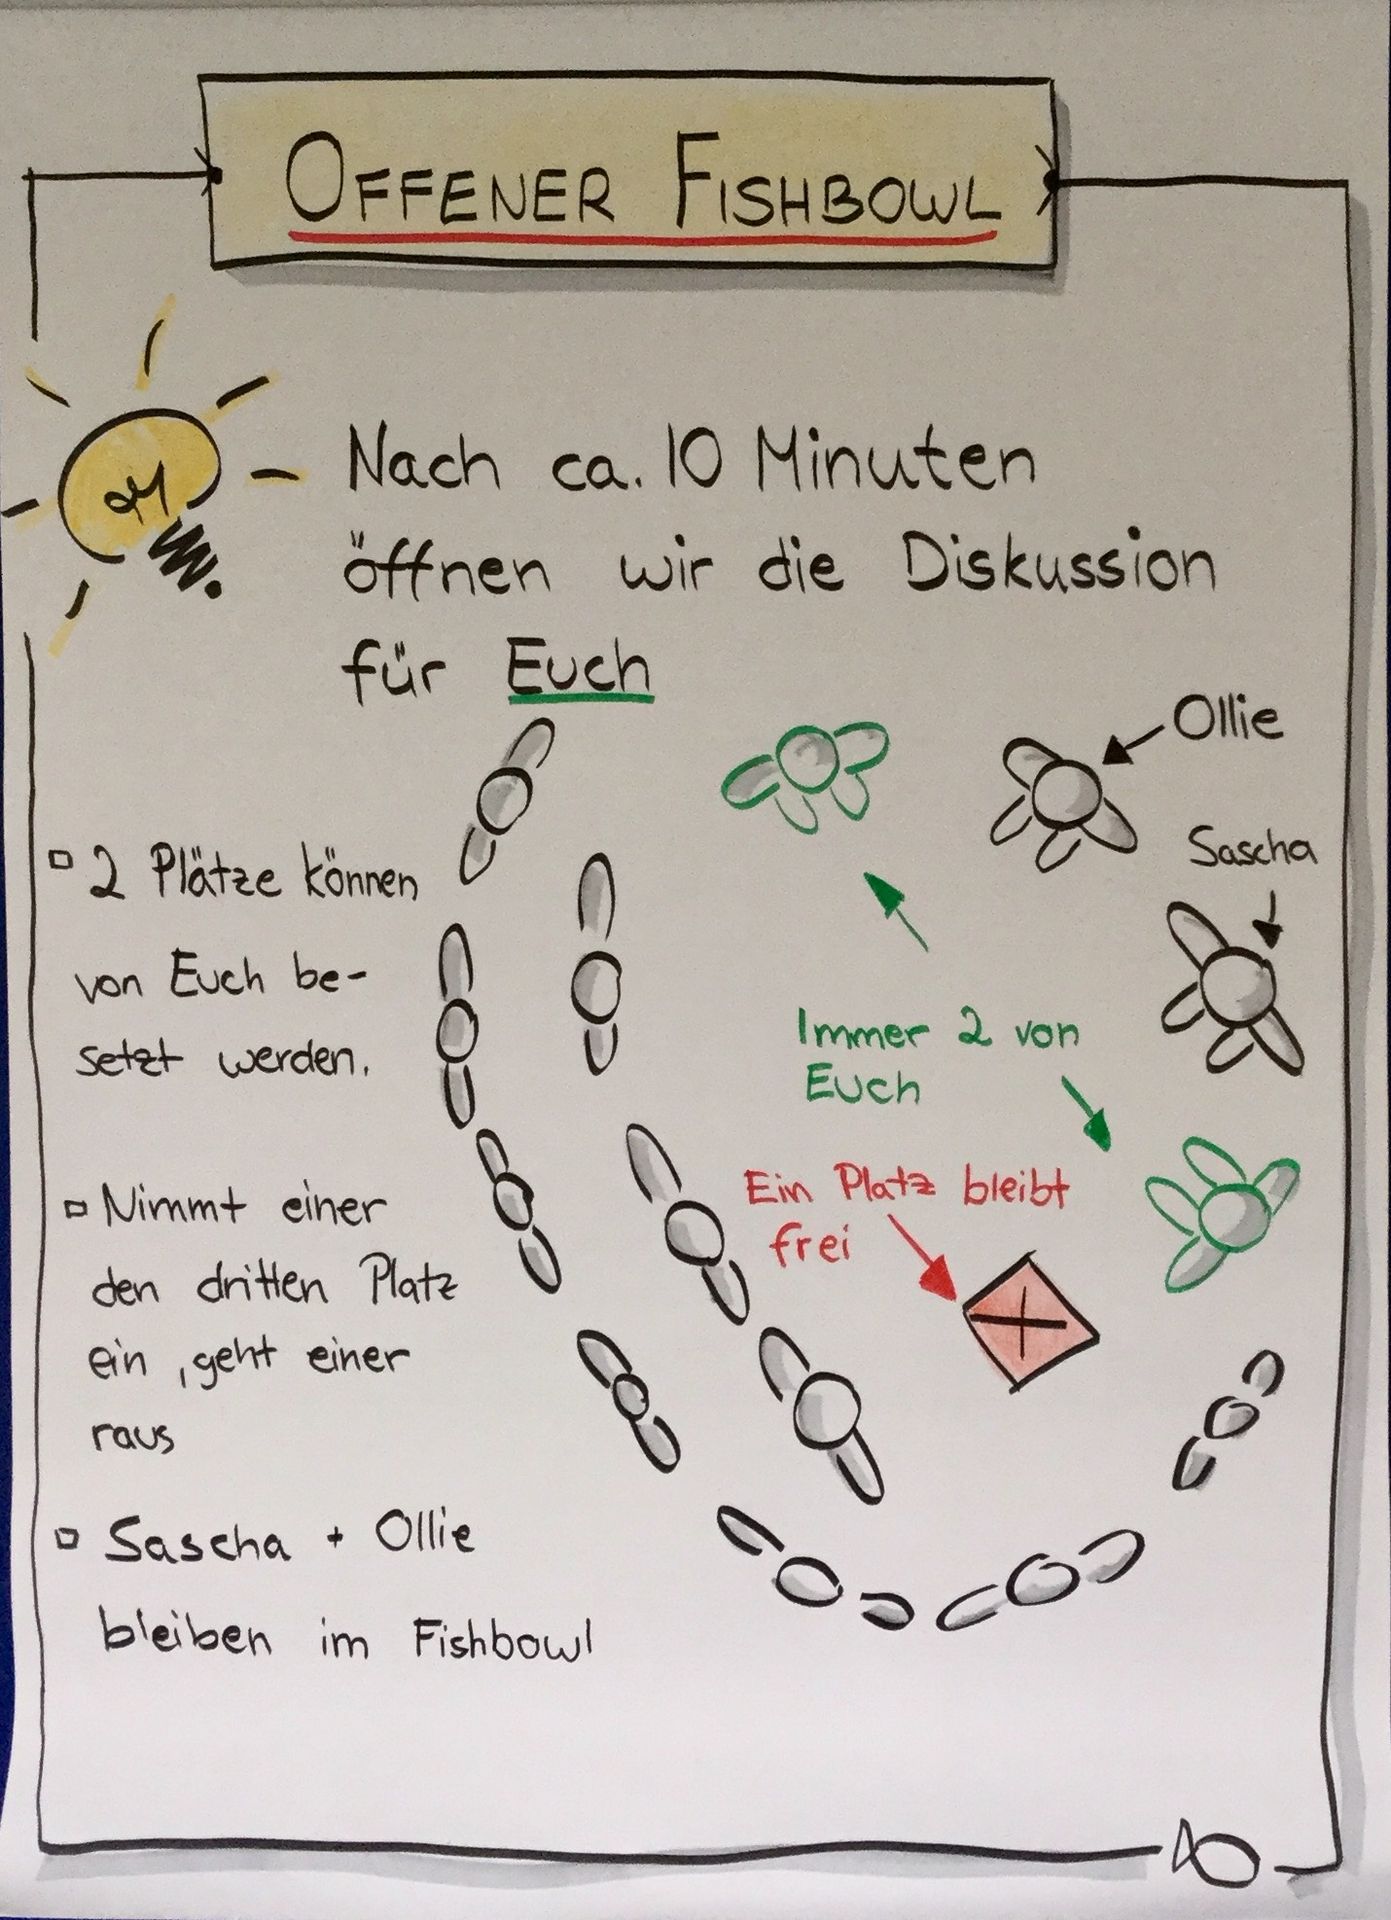 OFFENER FISHBOWL
Nach ca. 10 Minuten
öffnen wir die Diskussion
für Euch
Ollie
Sascha
▫ 2 Plätze können
von Euch be-
setzt werden.
Immer 2 von
Euch
Ein Platz bleibt
frei
▫ Nimmt einer
den dritten Platz
ein, geht einer
raus
▫ Sascha + Ollie
bleiben im Fishbowl